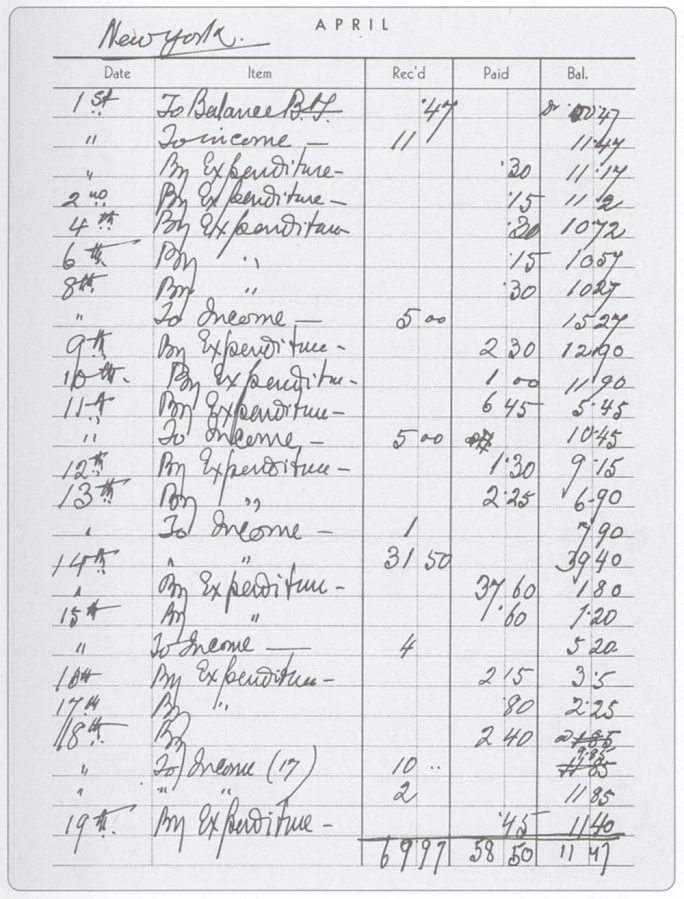 APRIL
New York.
Date Item Rec'd Paid Bal.
1st To Balance B.F. .47 47
" To income — 11 11.47
" By Expenditure - .30 11.17
2nd By Expenditure - .15 11 2
4th By Expenditure .30 10 72
6th By " .15 10 57
8th By " .30 10 27
" To Income — 5 00 15 27
9th By Expenditure - 2 30 12.90
10th. By Expenditure - 1 00 11 90
11th By Expenditure - 6 45 5.45
" To Income, - 5 00 10.45
12th By Expenditure - 1.30 9.15
13th By " 2.25 6.90
" To Income — 1 7 90
14th " " 31 50 39 40
" By Expenditure - 37 60 1 80
15th By " .60 1.20
" To Income — 4 5 20
16th By Expenditure - 2 15 3.5
17th By " .80 2.25
18th By 2 40
" To Income (17) 10 .. 9.85
" " " 2 11 85
19th. By Expenditure - .45 11 40
69 97 58 50 11 47